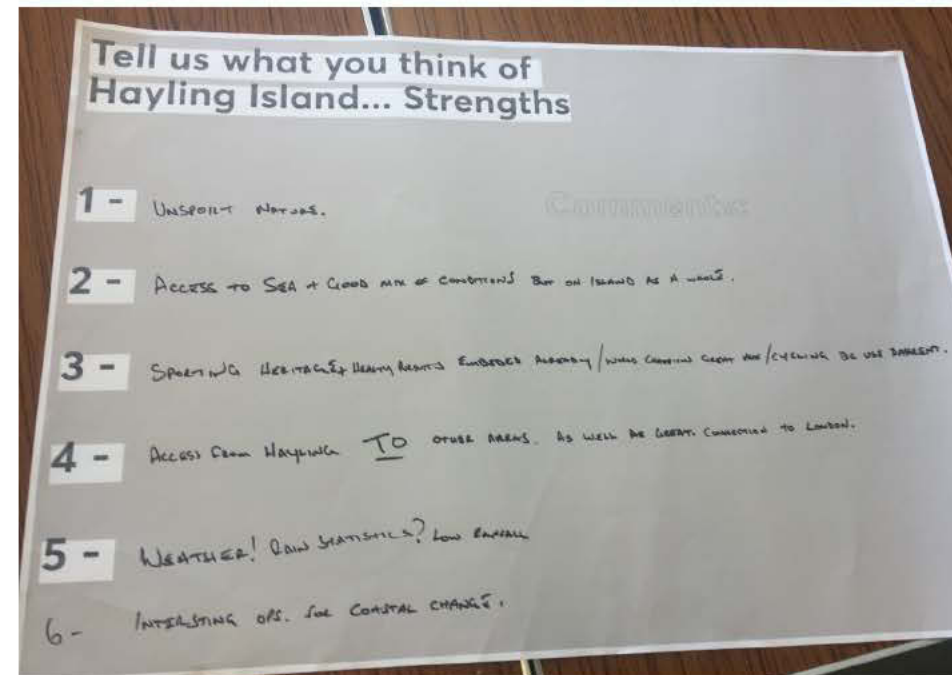 Tell us what you think of
Hayling Island... Strengths
Comments
1 - UNSPOILT NATURE.
2 - ACCESS TO SEA + GOOD MIX OF CONDITIONS BUT ON ISLAND AS A WHOLE.
3 - SPORTING HERITAGE & HEALTHY EMBEDDED ALREADY / GREAT / CYCLING
4 - ACCESS FROM HAYLING TO OTHER AREAS. AS WELL AS GREAT CONNECTION TO LONDON.
5 - WEATHER! RAIN STATISTICS? LOW RAINFALL
6 - INTERESTING OPS. FOR COASTAL CHANGE.